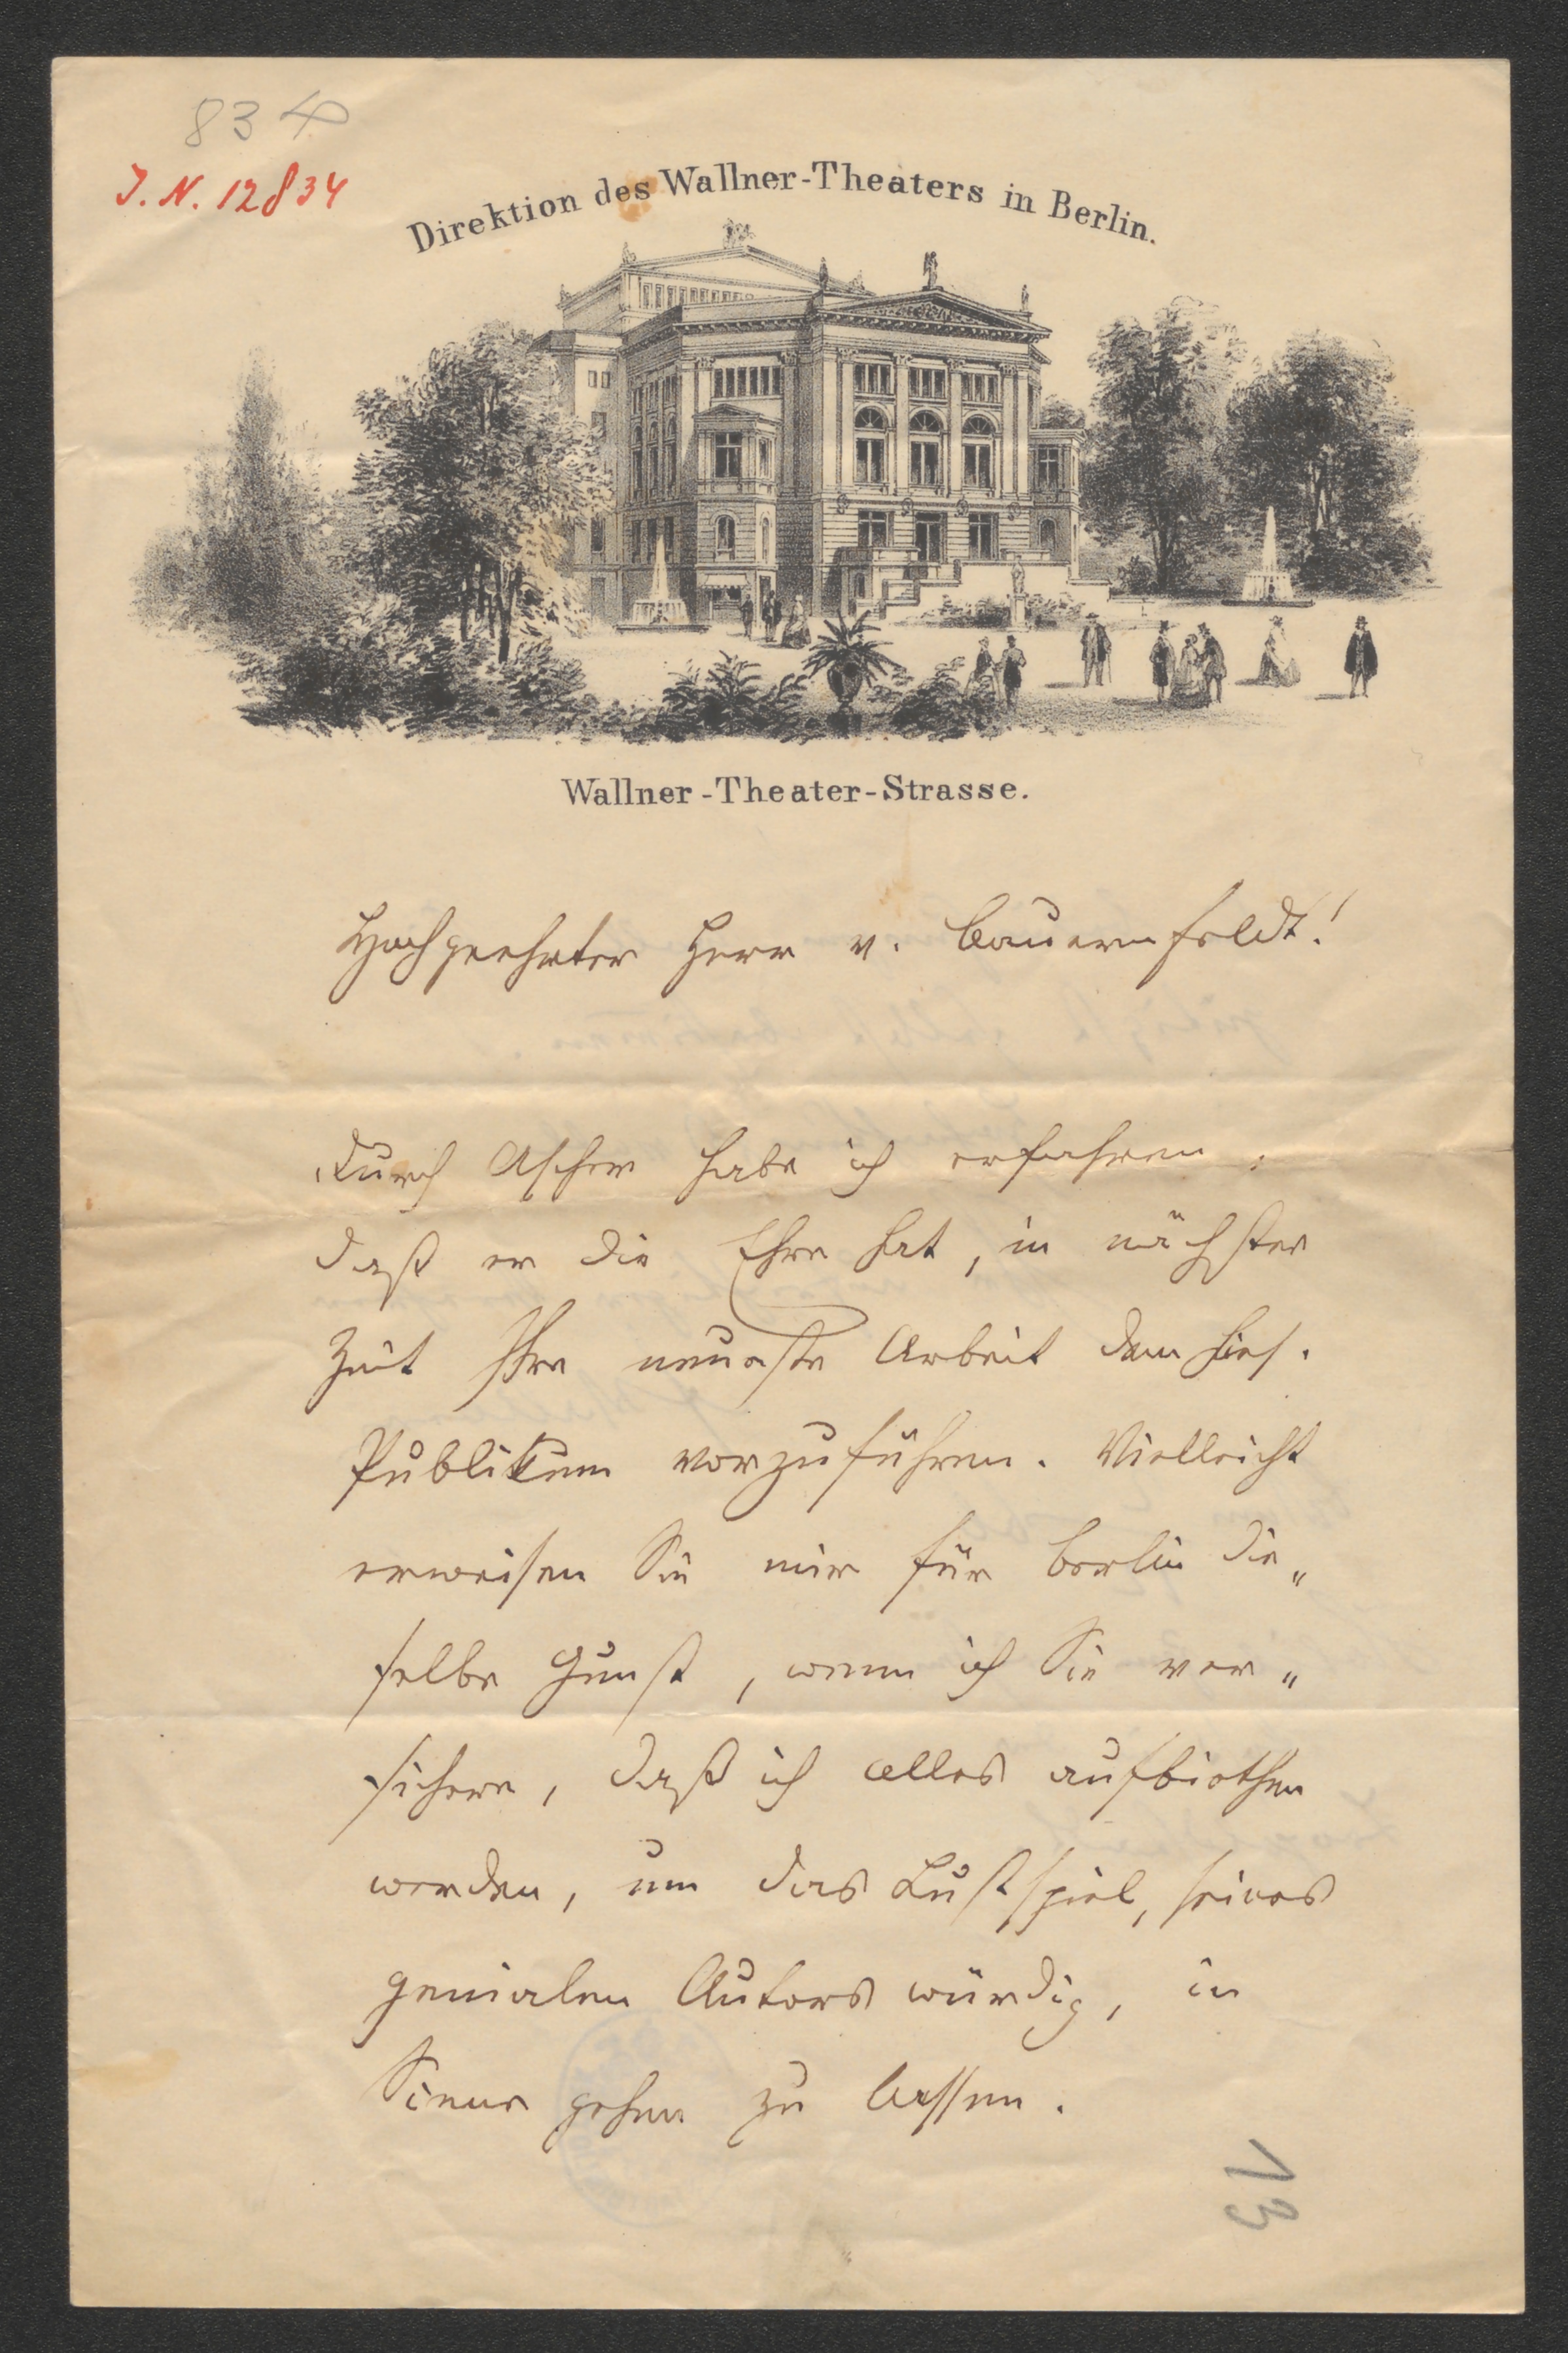 834
J. N. 12834
Direktion des Wallner-Theaters in Berlin.
Wallner-Theater-Strasse.
Hochgeehrter Herr v. Bauernfeldt!
Durch Ascher habe ich erfahren,
daß er die Ehre hat, in nächster
Zeit Ihre neueste Arbeit dem hies.
Publikum vorzuführen. Vielleicht
erweisen Sie mir für Berlin die„
selbe Gunst, wenn ich Sie ver„
sichere, daß ich alles aufbiethen
werden, um das Lustspiel, seines
genialen Autors würdig, in
Scene gehen zu lassen.
13